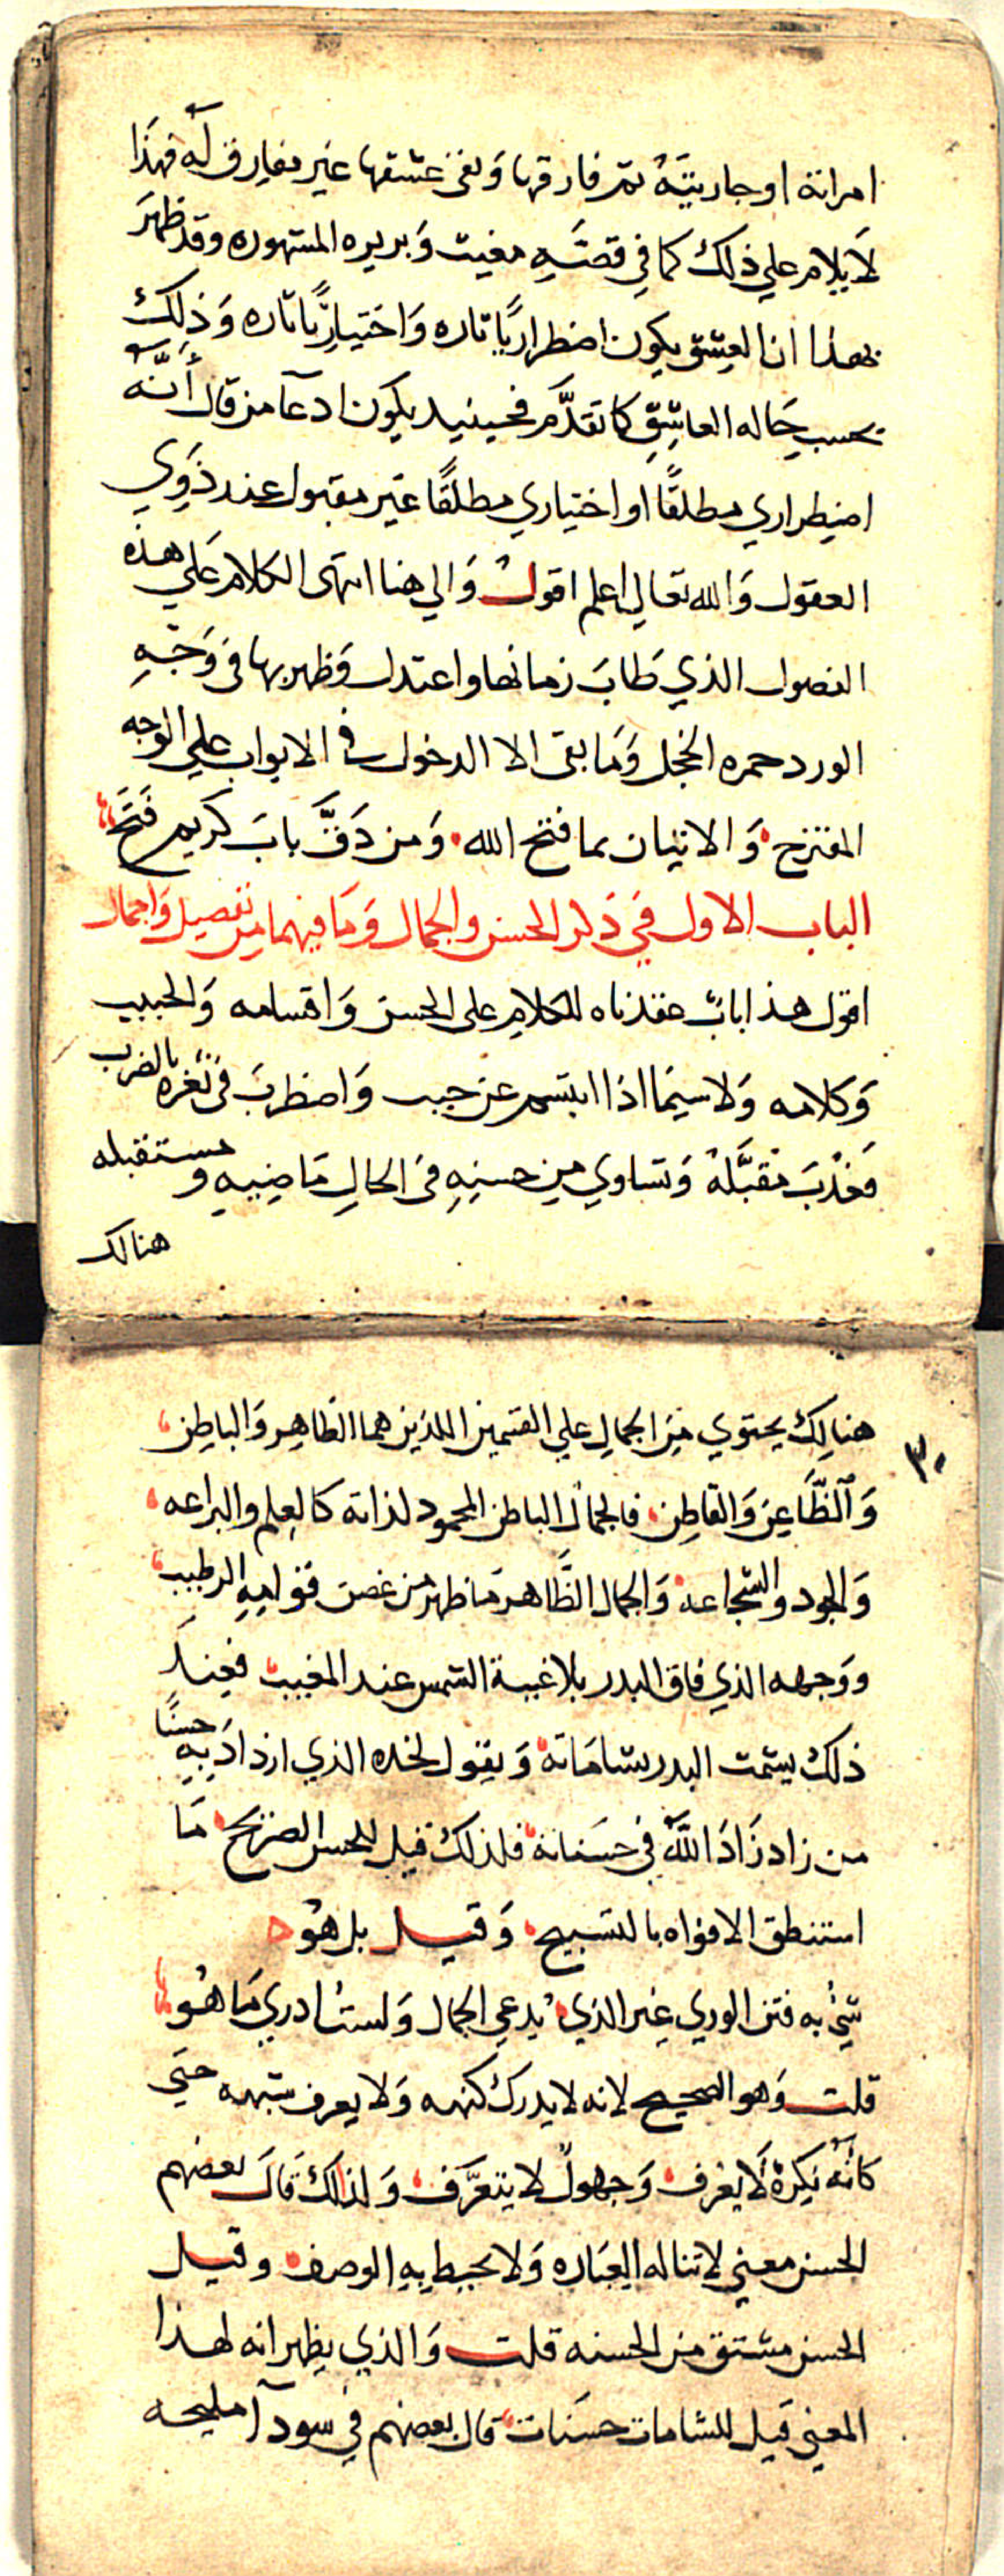 امراته او جاريته ثم فارقها وبقي عشقها غير مفارق له فهذا
لا يلام علي ذلك كما في قصته مغيث وبريره المشهوره وقد ظهر
بهذا ان العشق يكون اضطراريًا تاره واختياريًّا تاره وذلك
بحسب حاله العاشق كما تقدَّم فحينيد يكون ادعآ من قال أنَّه
اضطراري مطلقًا او اختياري مطلقًا غير مقبول عند ذوي
العقول والله تعالي اعلم اقول والي هنا انتهى الكلام علي هذه
الفصول الذي طاب زمانها واعتدل وظهر بها في وجه
الورد حمره الخجل وما بقى الا الدخول في الابواب علي الوجه
المقترح والاتيان بما فتح الله ومن دقَّ باب كريم فتح
الباب الاول في ذكر الحسن والجمال وما فيهما من تفصيل واجمال
اقول هذا بابٌ عقدناه للكلام على الحسن واقسامه والحبيب
وكلامه ولا سيما اذا ابتسم عن حبب واضطرب في ثغره بالضرب
فعذب مقبَّله وتساوي من حسنه في الحال ماضيه ومستقبله
هنالك
٣٠
هنالك يحتوي من الجمال علي القسمين اللذين هما الظاهر والباطن
والظَّاعن والقاطن فالجمال الباطن المحمود لذاته كالعلم والبراعه
والجود والشجاعه والجمال الظَّاهر ما ظهر من غصن قوامه الرطيب
ووجهه الذي فاق البدر بلا غيبة الشمس عند المغيب فعند
ذلك يشمت البدر بشاماته ويقول لخده الذي ازداد به حسنًا
من زاد زاد اللّه في حسناته فلذلك قيل للحسن الصريح ما
استنطق الافواه بالتسبيح وقيل بل هو
شيٌ به فتن الوري غير الذي يدعي الجمال ولست ادري ما هو
قلت وهو الصحيح لانه لا يدرك كنهه ولا يعرف شبهه حتي
كانه نكرة لا يعرف وجهول لا يتعرَّف ولذلك قال بعضهم
الحسن معني لا تناله العباره ولا يحيط به الوصف وقيل
الحسن مشتق من الحسنه قلت والذي يظهر انه لهذا
المعني قيل للشامات حسنات قال بعضهم في سودآ مليحه